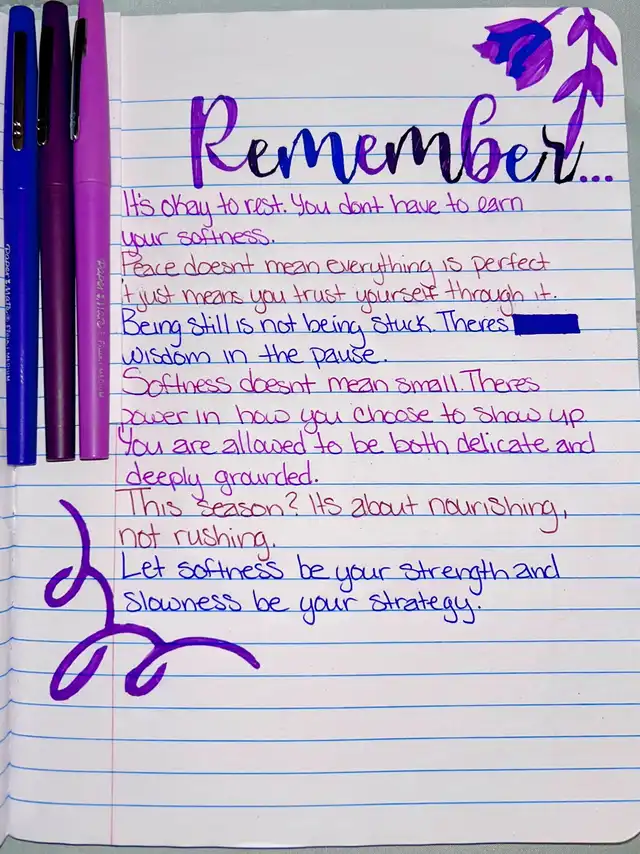 Remember...
It's okay to rest. You dont have to earn
your softness.
Peace doesnt mean everything is perfect
t just means you trust yourself through it.
Being still is not being stuck. Theres
wisdom in the pause.
Softness doesnt mean small. Theres
power in how you choose to show up
You are allowed to be both delicate and
deeply grounded.
This season? Its about nourishing,
not rushing.
Let softness be your strength and
slowness be your strategy.